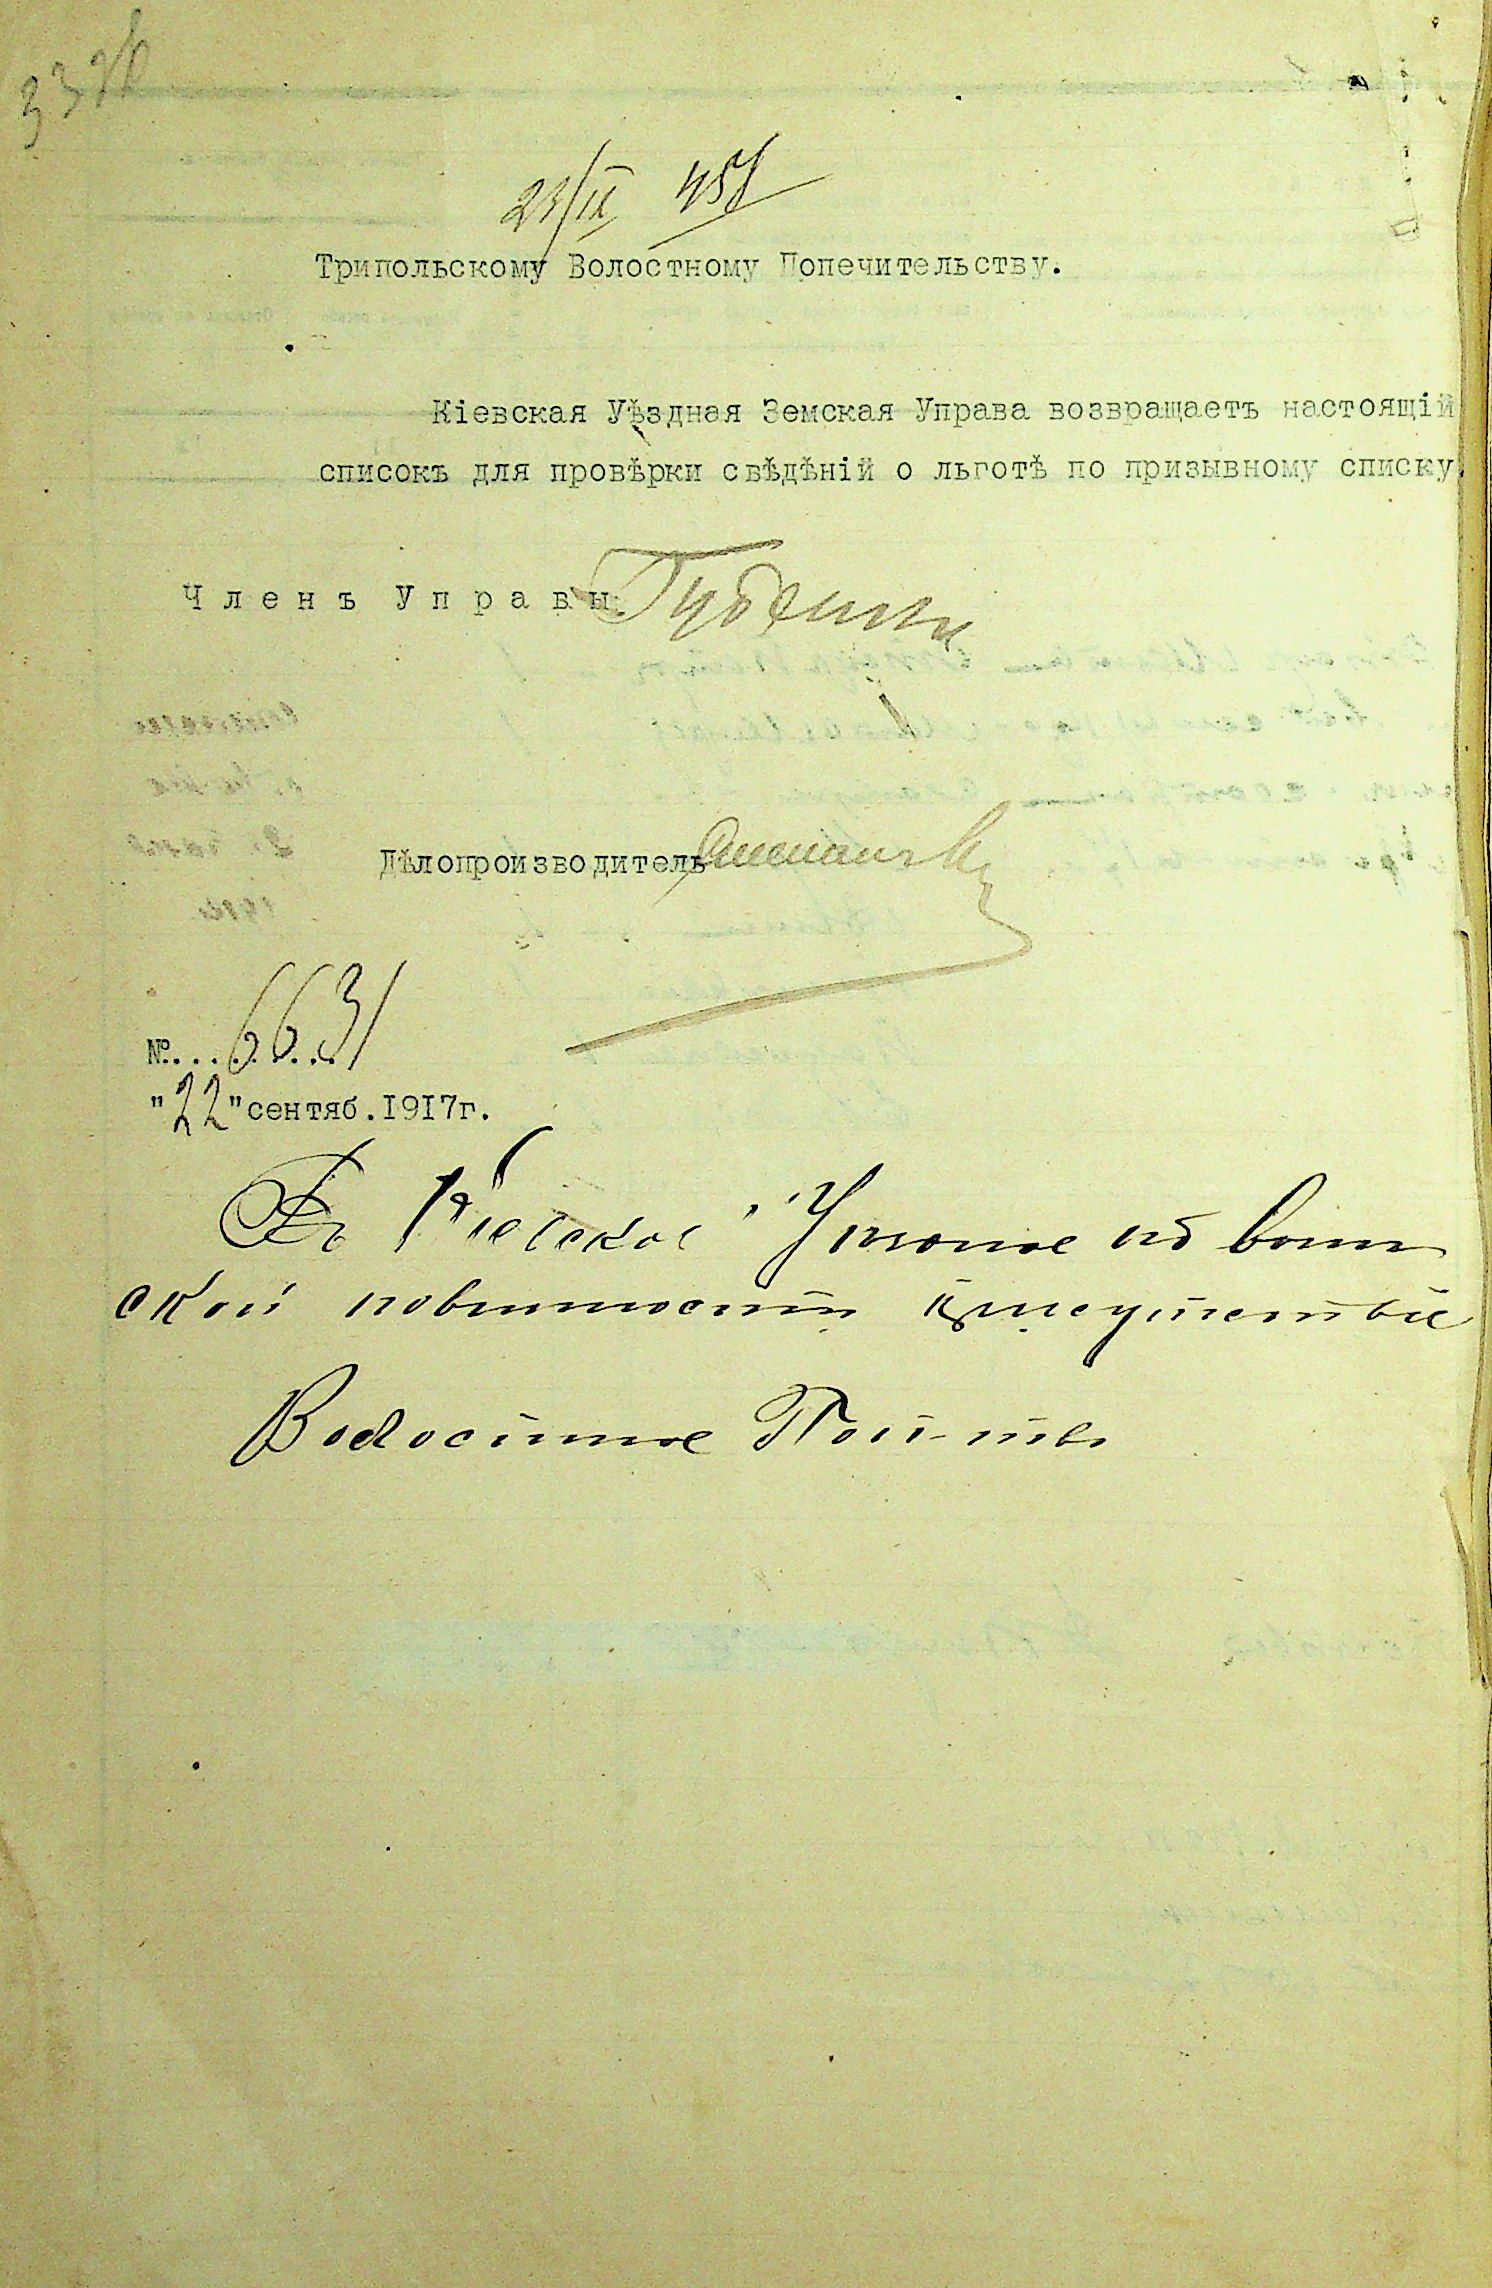 23/IX 451
Трипольскому Волостному Попечительству.
Кіевская Уѣздная Земская Управа возвращаетъ настоящій
списокъ для провѣрки свѣдѣній о льготѣ по призывному списку.
Членъ Управы
Дѣлопроизводитель
№ 6631
"22" сентяб. 1917г.
Въ Кіевское Уѣздное по воин
ской повинности присутствіе
Волостное Поп-тво